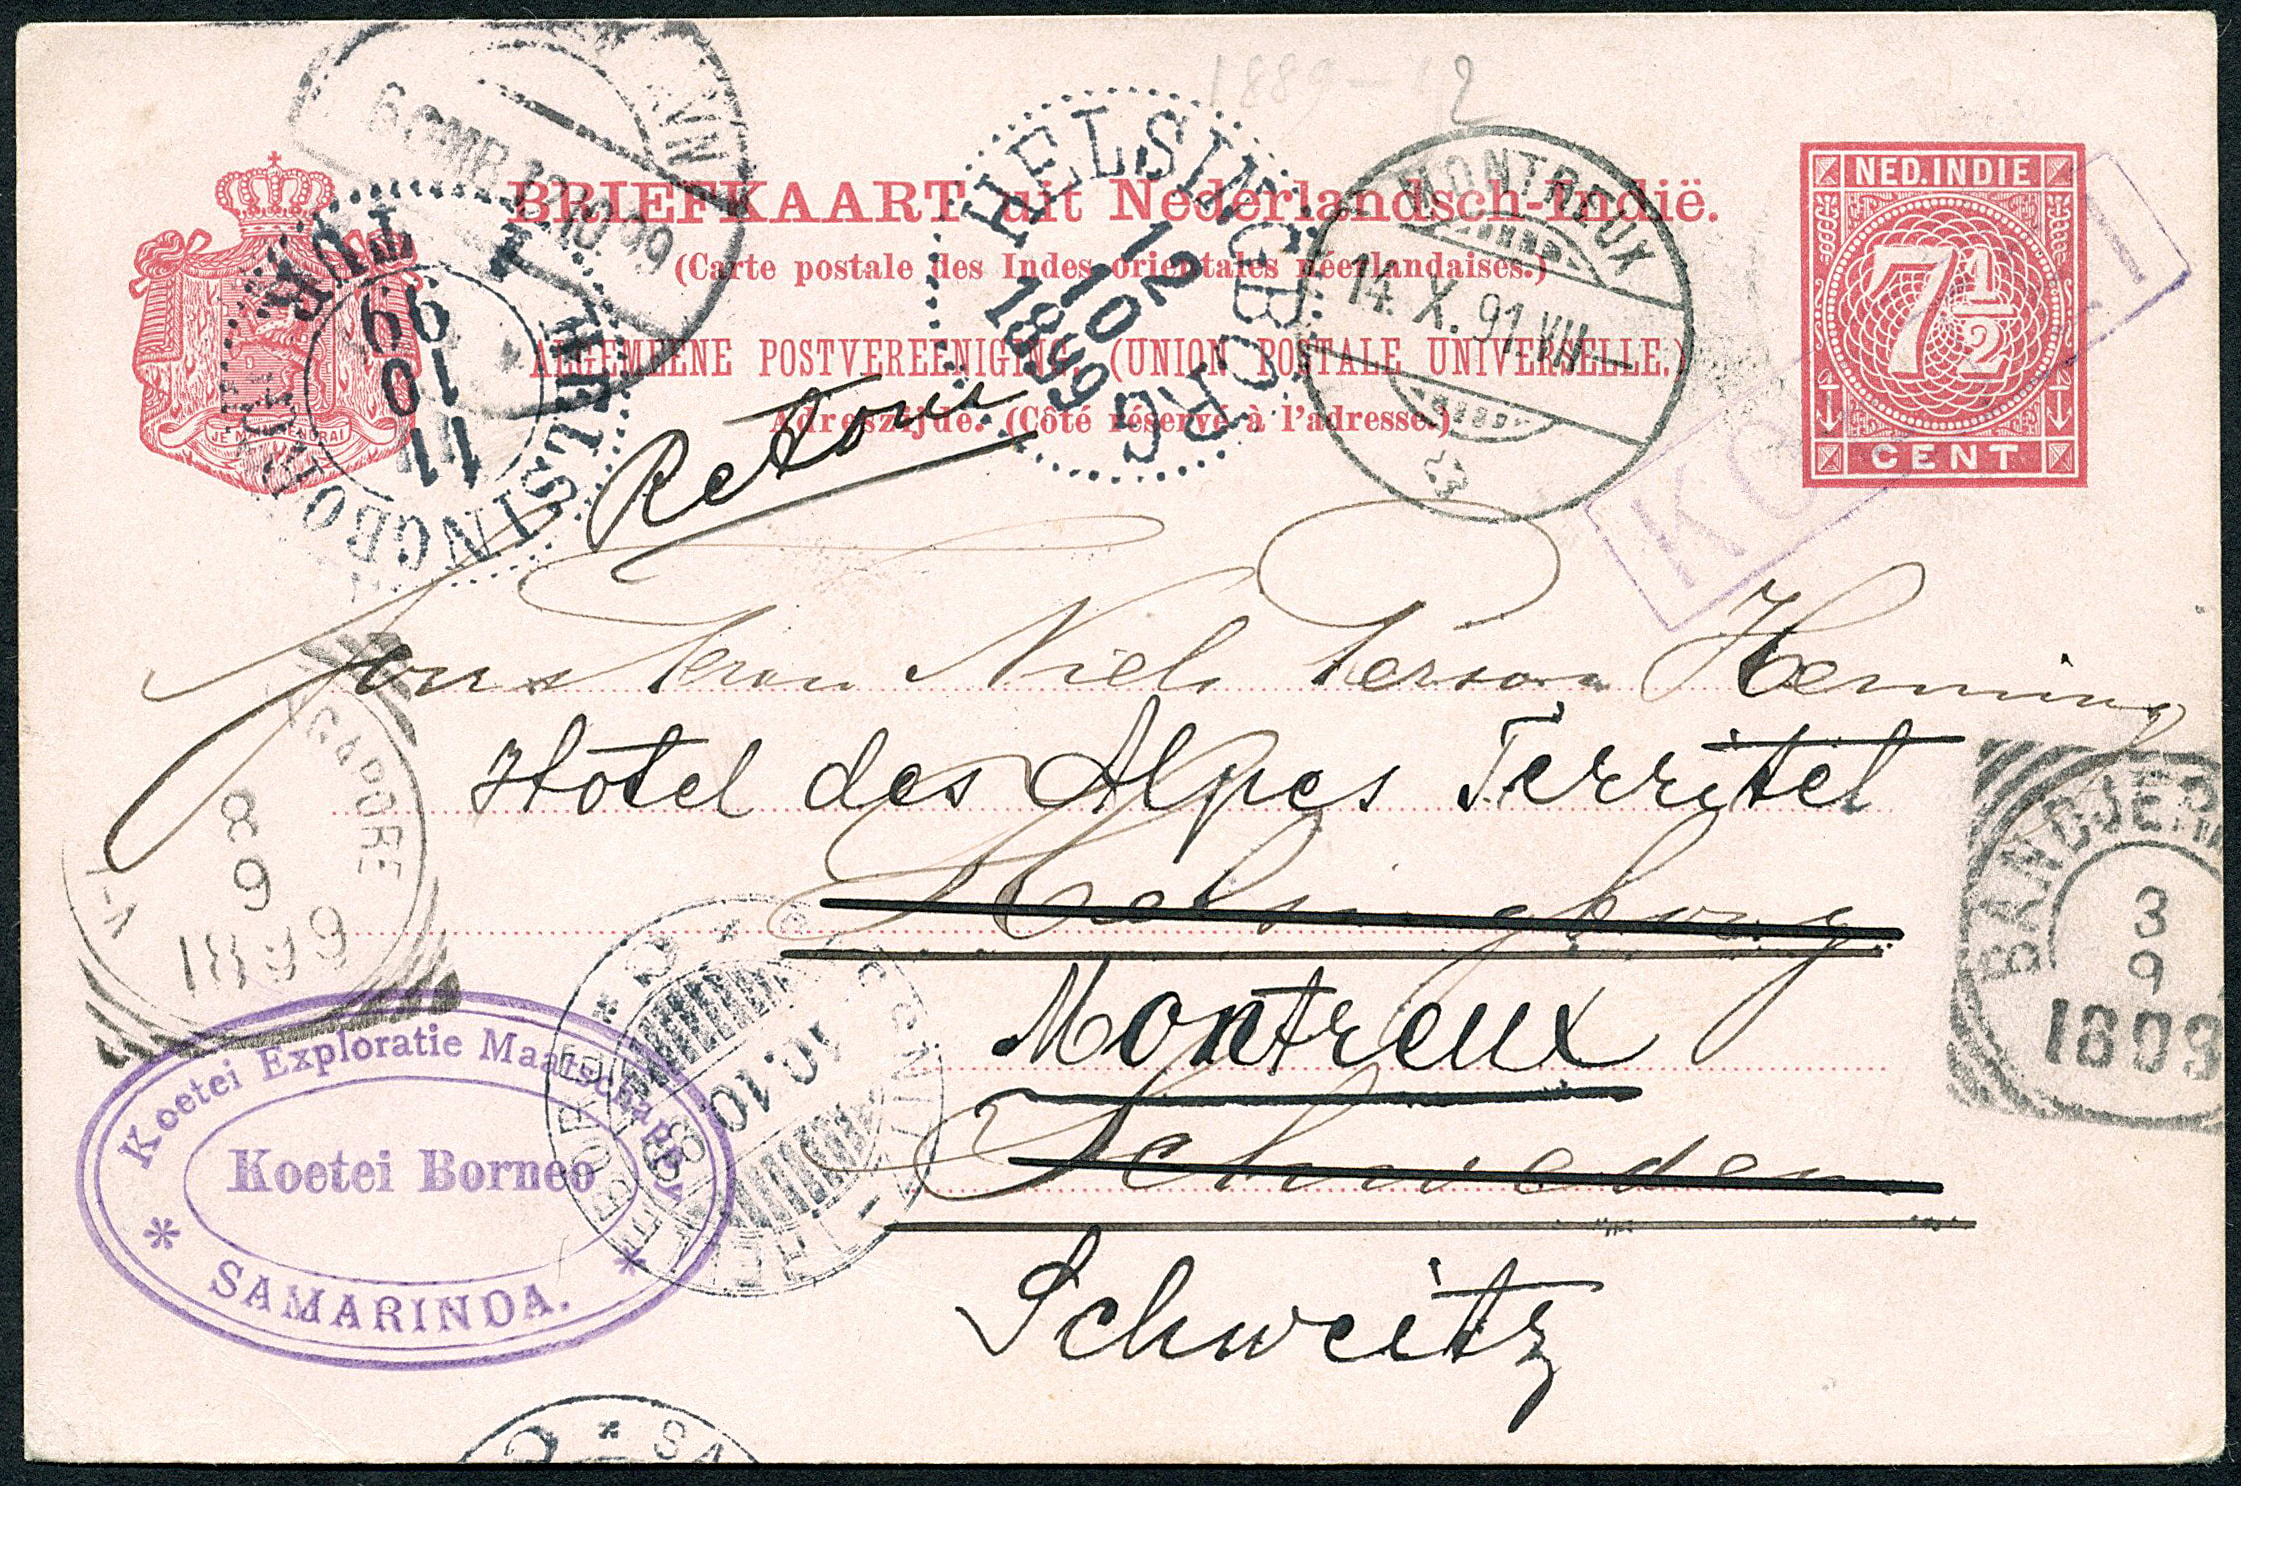 1889-12
BRIEFKAART uit Nederlandsch-Indië.
(Carte postale des Indes orientales néerlandaises.)
ALGEMEENE POSTVEREENIGING. (UNION POSTALE UNIVERSELLE.)
Adreszijde. (Côté réservé à l'adresse.)
JE MAINTIENDRAI
NED. INDIE
7 1/2
CENT
6 OMB 12 10 99
HELSINGBORG
TUR
11
10
99
HELSINGBORG
12
10
1899
MONTREUX
14. X. 91. VII
Retour
Niels Person Henning
Hôtel des Alpes Territet
Helsingborg
Montreux
Schweden
Schweitz
8
9
1899
BANDJERM
3
9
1899
10.10
Koetei Exploratie Maatschappy
Koetei Borneo
* SAMARINDA. *
* SA